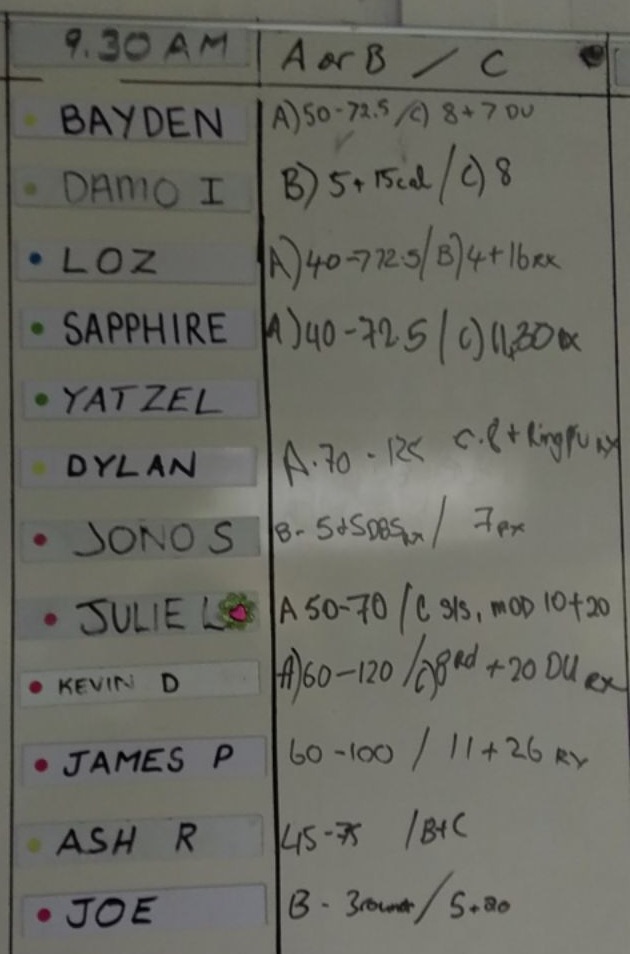 9.30 AM A or B / C
BAYDEN A) 50-72.5 / C) 8+7 DU
DAMO I B) 5+15cal / C) 8
LOZ A) 40-772.5 / B) 4+16 RX
SAPPHIRE A) 40-72.5 / C) 11,30
YATZEL
DYLAN A. 70 - C. 8 + Ring
JONO S B- 5+5DBS / 7 RX
JULIE L A 50-70 / C S/S, MOD 10+20
KEVIN D A) 60-120 / C) 8Rd +20 DU RX
JAMES P 60-100 / 11+26 RX
ASH R 45-75 / B+C
JOE B - 3rounds / 5+20